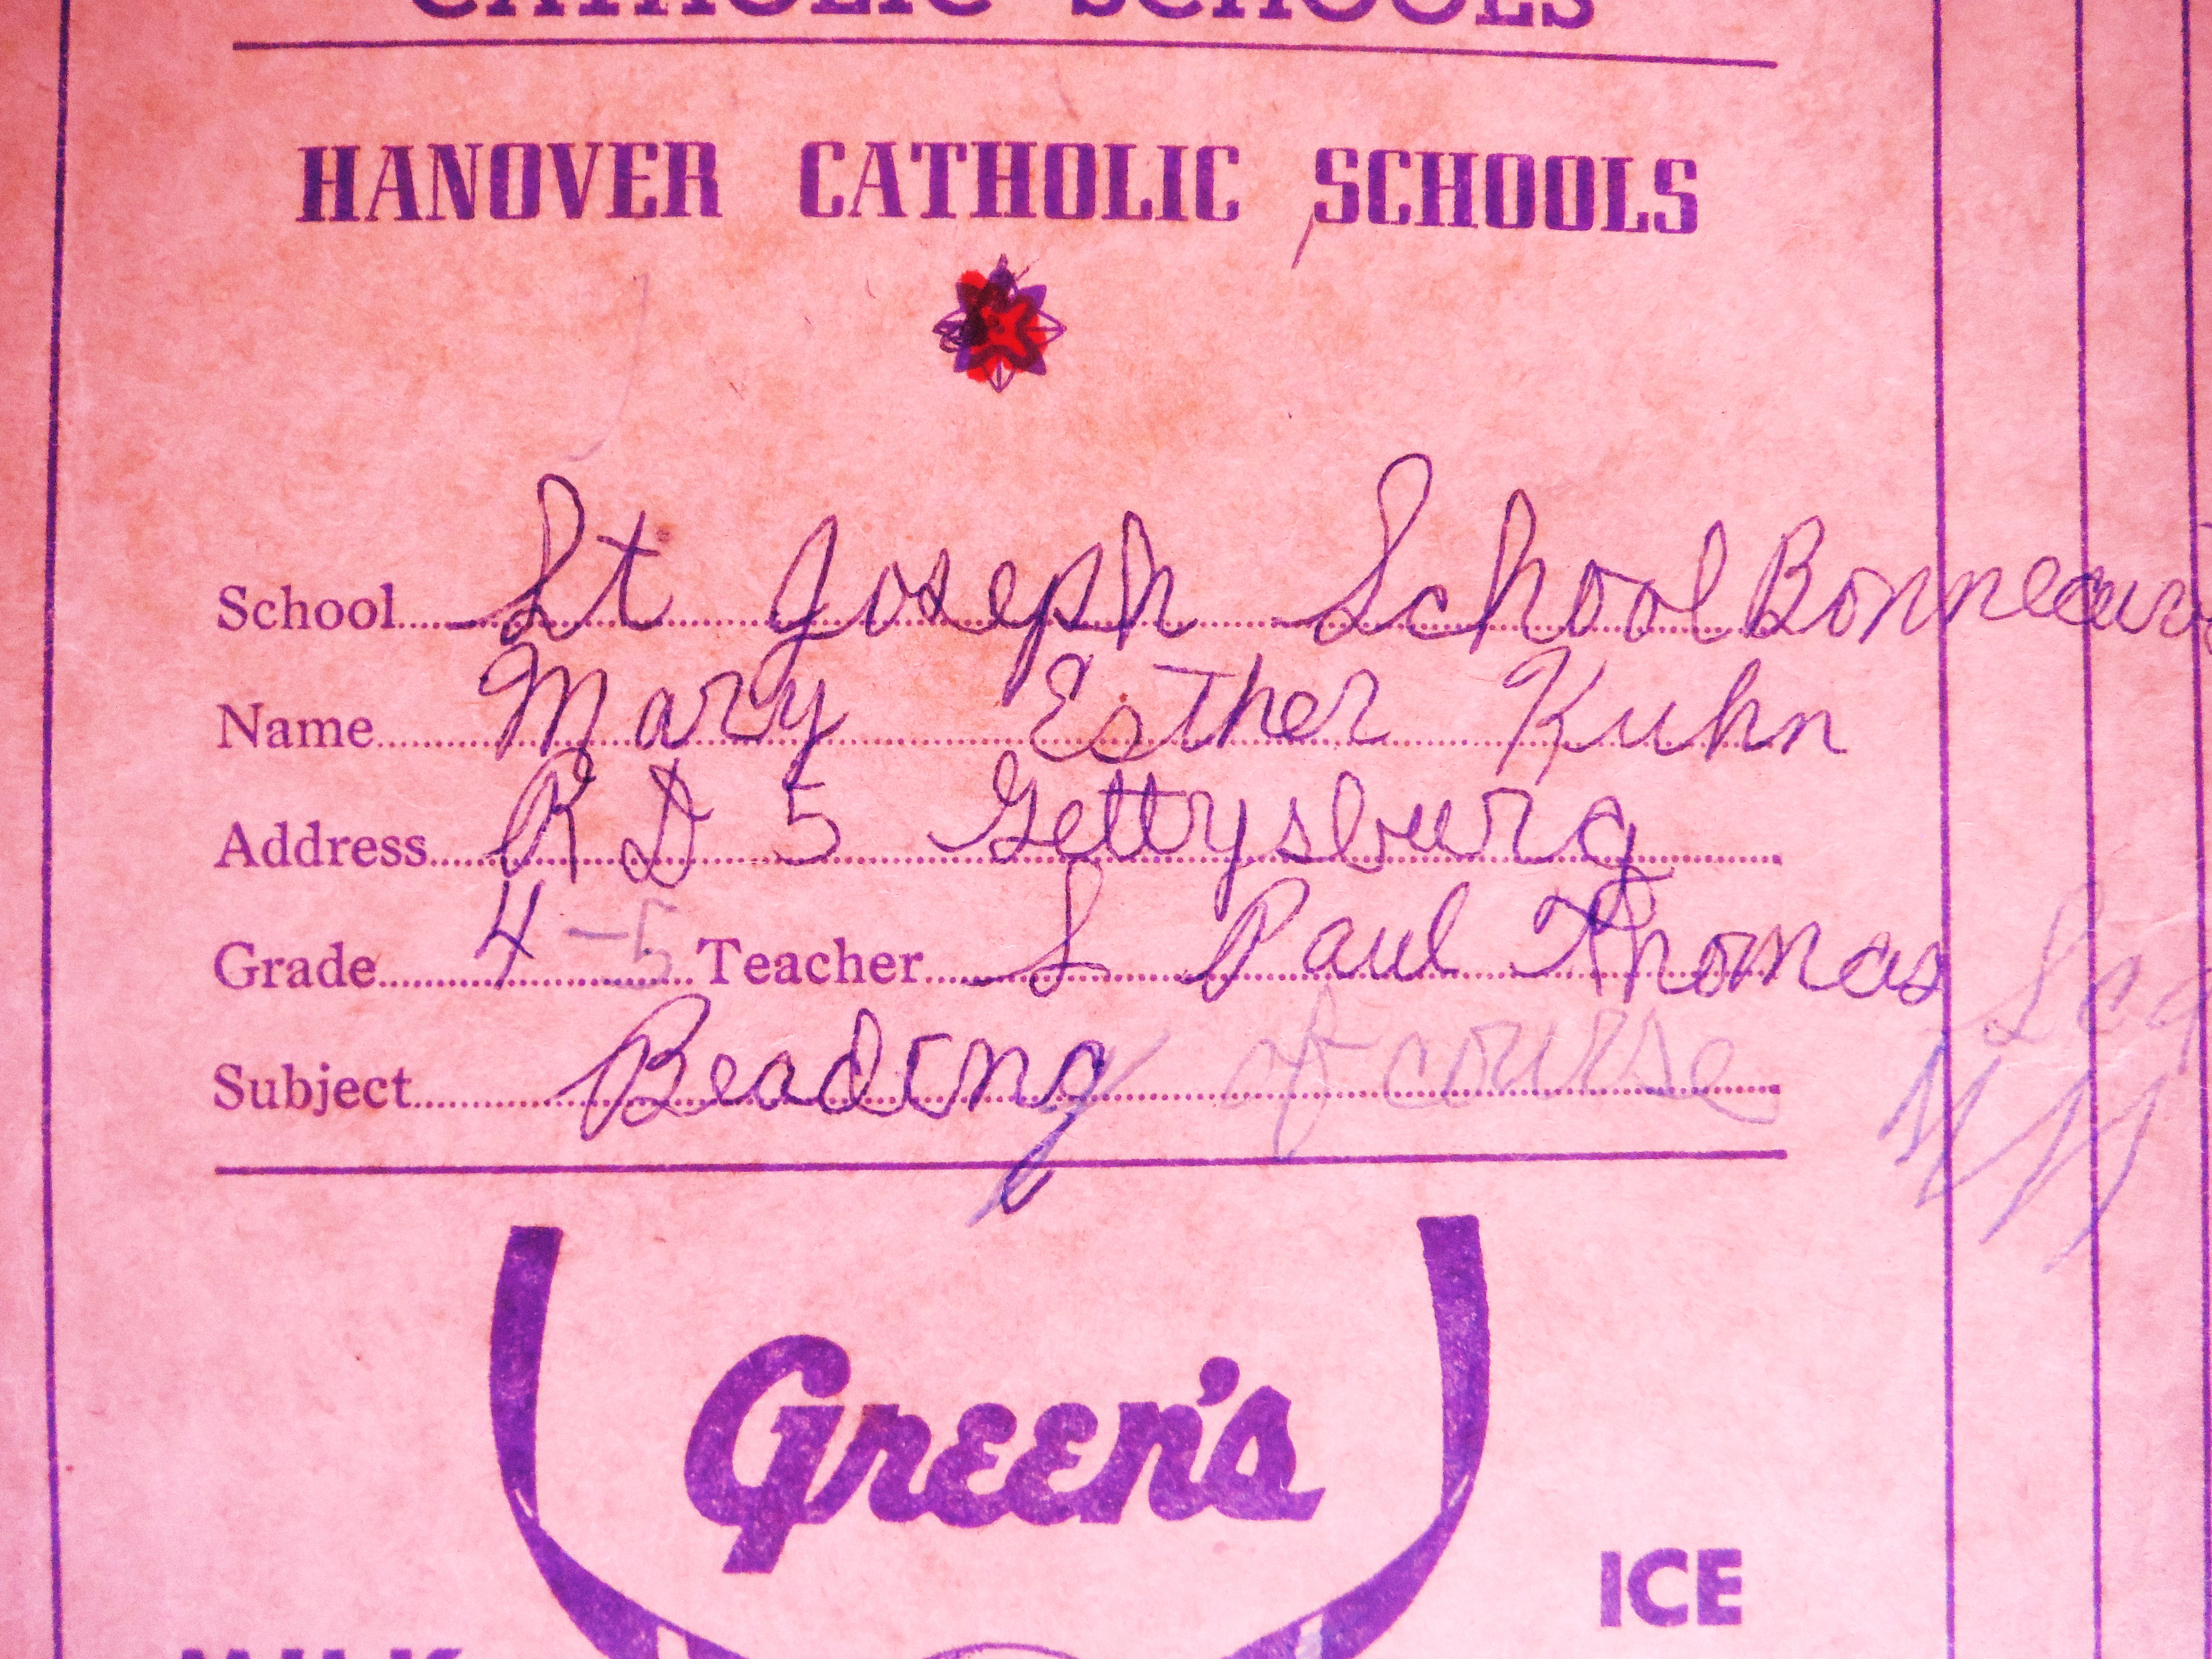 CATHOLIC SCHOOLS
HANOVER CATHOLIC SCHOOLS
School St Joseph School Bonneau
Name Mary Esther Kuhn
Address R D 5 Gettysburg
Grade 4-5 Teacher S Paul Thomas
Subject Reading of course
Green's
ICE
MILK